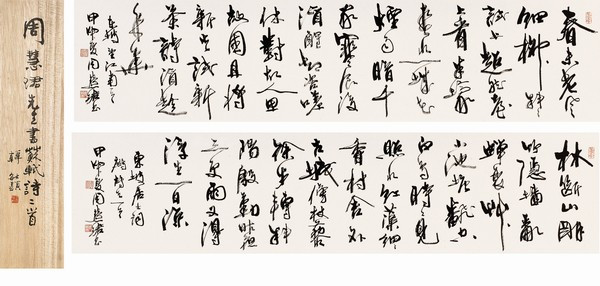 周慧珺先生書蘇軾詩二首
春未老風
細柳斜斜
試上超然臺
上看半壕
春水一城花
煙雨暗千
家寒食後
酒醒卻咨嗟
休對故人思
故國且將
新火試新
茶詩酒趁
年華
東坡望江南
甲申夏周慧珺書
林斷山明
竹隱牆亂
蟬衰草
小池塘翻空
白鳥時時見
照水紅蕖細細
香村舍外
古城傍杖藜
徐步轉斜
陽殷勤昨夜
三更雨又得
浮生一日涼
東坡居士詞
鷓鴣天一首
甲申夏周慧珺書